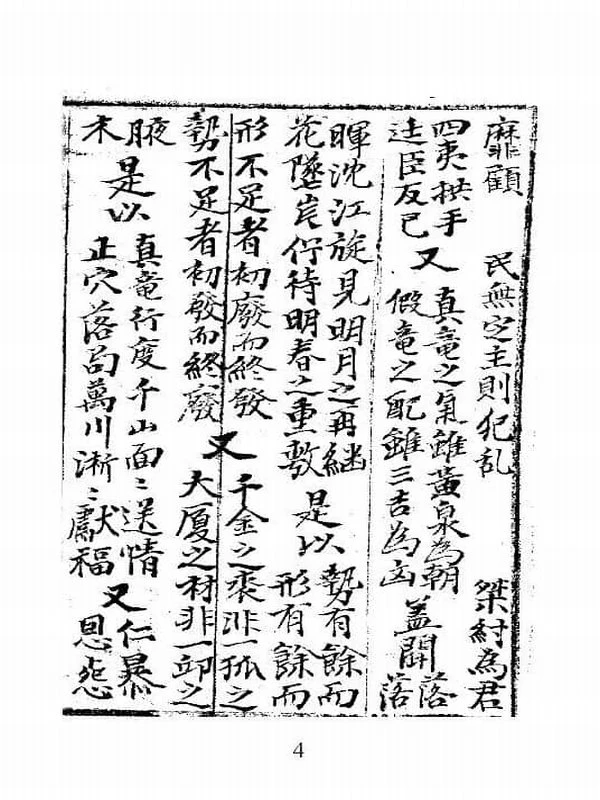 靡顧 民無定主則犯乱 桀紂為君
四夷拱手 又 真竜之氣雖黄泉為朝 盖聞 落
臣反已 假竜之配雖三吉為凶 落
暉沈江旋見明月之再継 是以 勢有餘而
花墜岩佇待明春之重敷 形有餘而
形不足者初廢而終發 又 千金之裘非一狐之
勢不足者初發而終廢 大厦之材非一邱之
腋 是以 真竜行度千山面〻送情 又 仁暴
木 正穴落局萬川淅〻獻福 恩怨
4